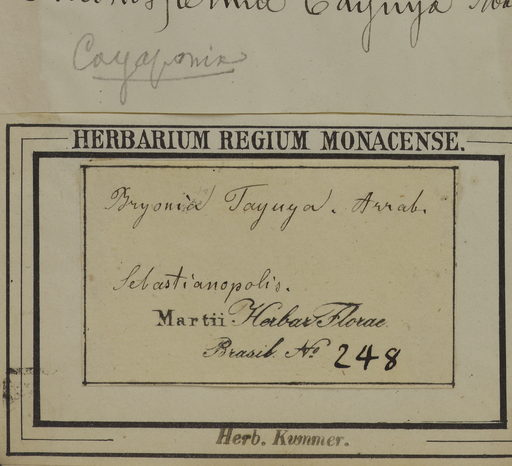 Tayuya
Cayaponia
HERBARIUM REGIUM MONACENSE.
Bryonia Tayuya. Arrab.
Sebastianopolis.
Martii Herbar. Florae
Brasil. No 248
Herb. Kummer.